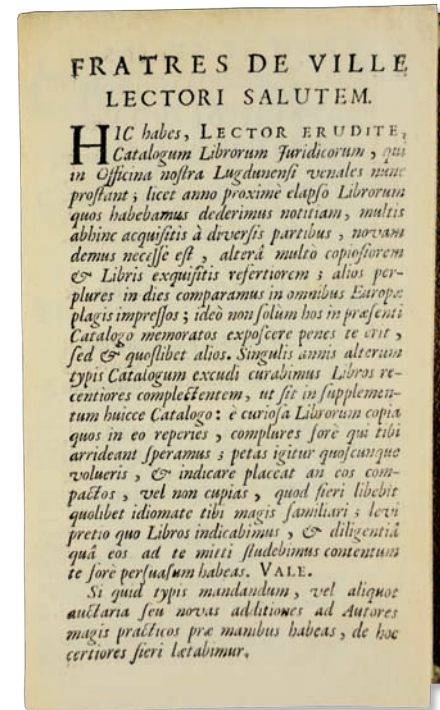 FRATRES DE VILLE
LECTORI SALUTEM.
HIC habes, LECTOR ERUDITE,
Catalogum Librorum Juridicorum, qui
in Officina nostra Lugdunensi venales nunc
prostant; licet anno proximè elapso Librorum
quos habebamus dederimus notitiam, multis
abhinc acquisitis à diversis partibus, novam
demus necesse est, alterâ multò copiosiorem
& Libris exquisitis refertiorem; alios per-
plures in dies comparamus in omnibus Europæ
plagis impressos; ideò non solum hos in præsenti
Catalogo memoratos exposcere penes te erit,
sed & quoslibet alios. Singulis annis alterum
typis Catalogum excudi curabimus Libros re-
centiores complectentem, ut sit in supplemen-
tum huicce Catalogo: è curiosa Librorum copia
quos in eo reperies, complures forè qui tibi
arrideant speramus; petas igitur quoscunque
volueris, & indicare placeat an eos com-
pactos, vel non cupias, quod fieri libebit
quolibet idiomate tibi magis familiari; levi
pretio quo Libros indicabimus, & diligentiâ
quâ eos ad te mitti studebimus contentum
te forè persuasum habeas. VALE.
Si quid typis mandandum, vel aliquot
auctaria seu novas additiones ad Autores
magis practicos præ manibus habeas, de hoc
certiores fieri lætabimur.